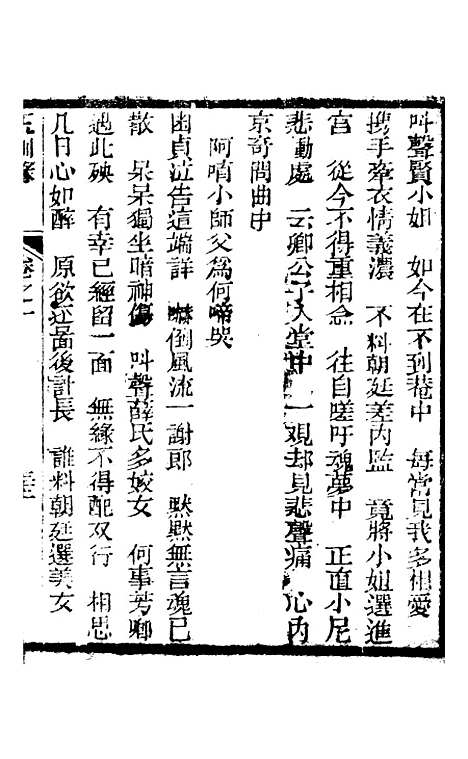 叫聲賢小姐　如今在不到菴中　每常見我多相愛
携手牽衣情義濃　不料朝廷差內監　竟將小姐選進
宫　從今不得重相念　往自嗟吁魂夢中　正直小尼
悲動處　云卿公子入堂中　一观却見悲聲痛　心內
京奇問曲中
阿唷小師父爲何啼哭
幽貞泣告這端詳　嚇倒風流一謝郎　默默無言魂已
散　呆呆獨坐暗神傷　叫聲薛氏多嬌女　何事芳卿
遇此殃　有幸已經留一面　無緣不得配双行　相思
几日心如醉　原欲还啚後計長　誰料朝廷選美女
卷之一